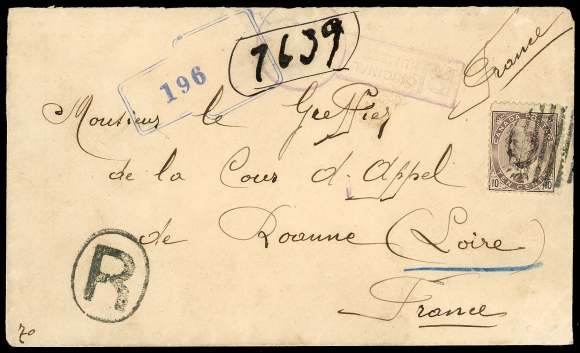 196
7639
France
Monsieur le Greffier
de la Cour d'Appel
de Roanne (Loire)
France
R
CANADA POSTAGE
10 10
TEN CENTS